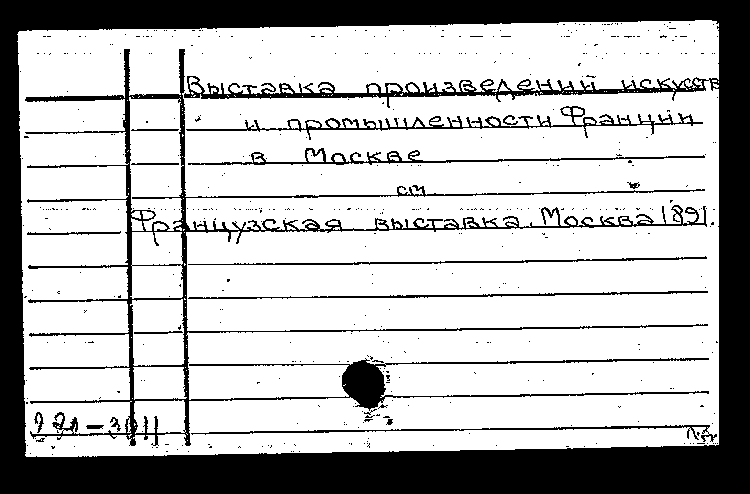 Выставка произведений искусств
и промышленности Франции
в Москве
см.
Французская выставка. Москва 1891.